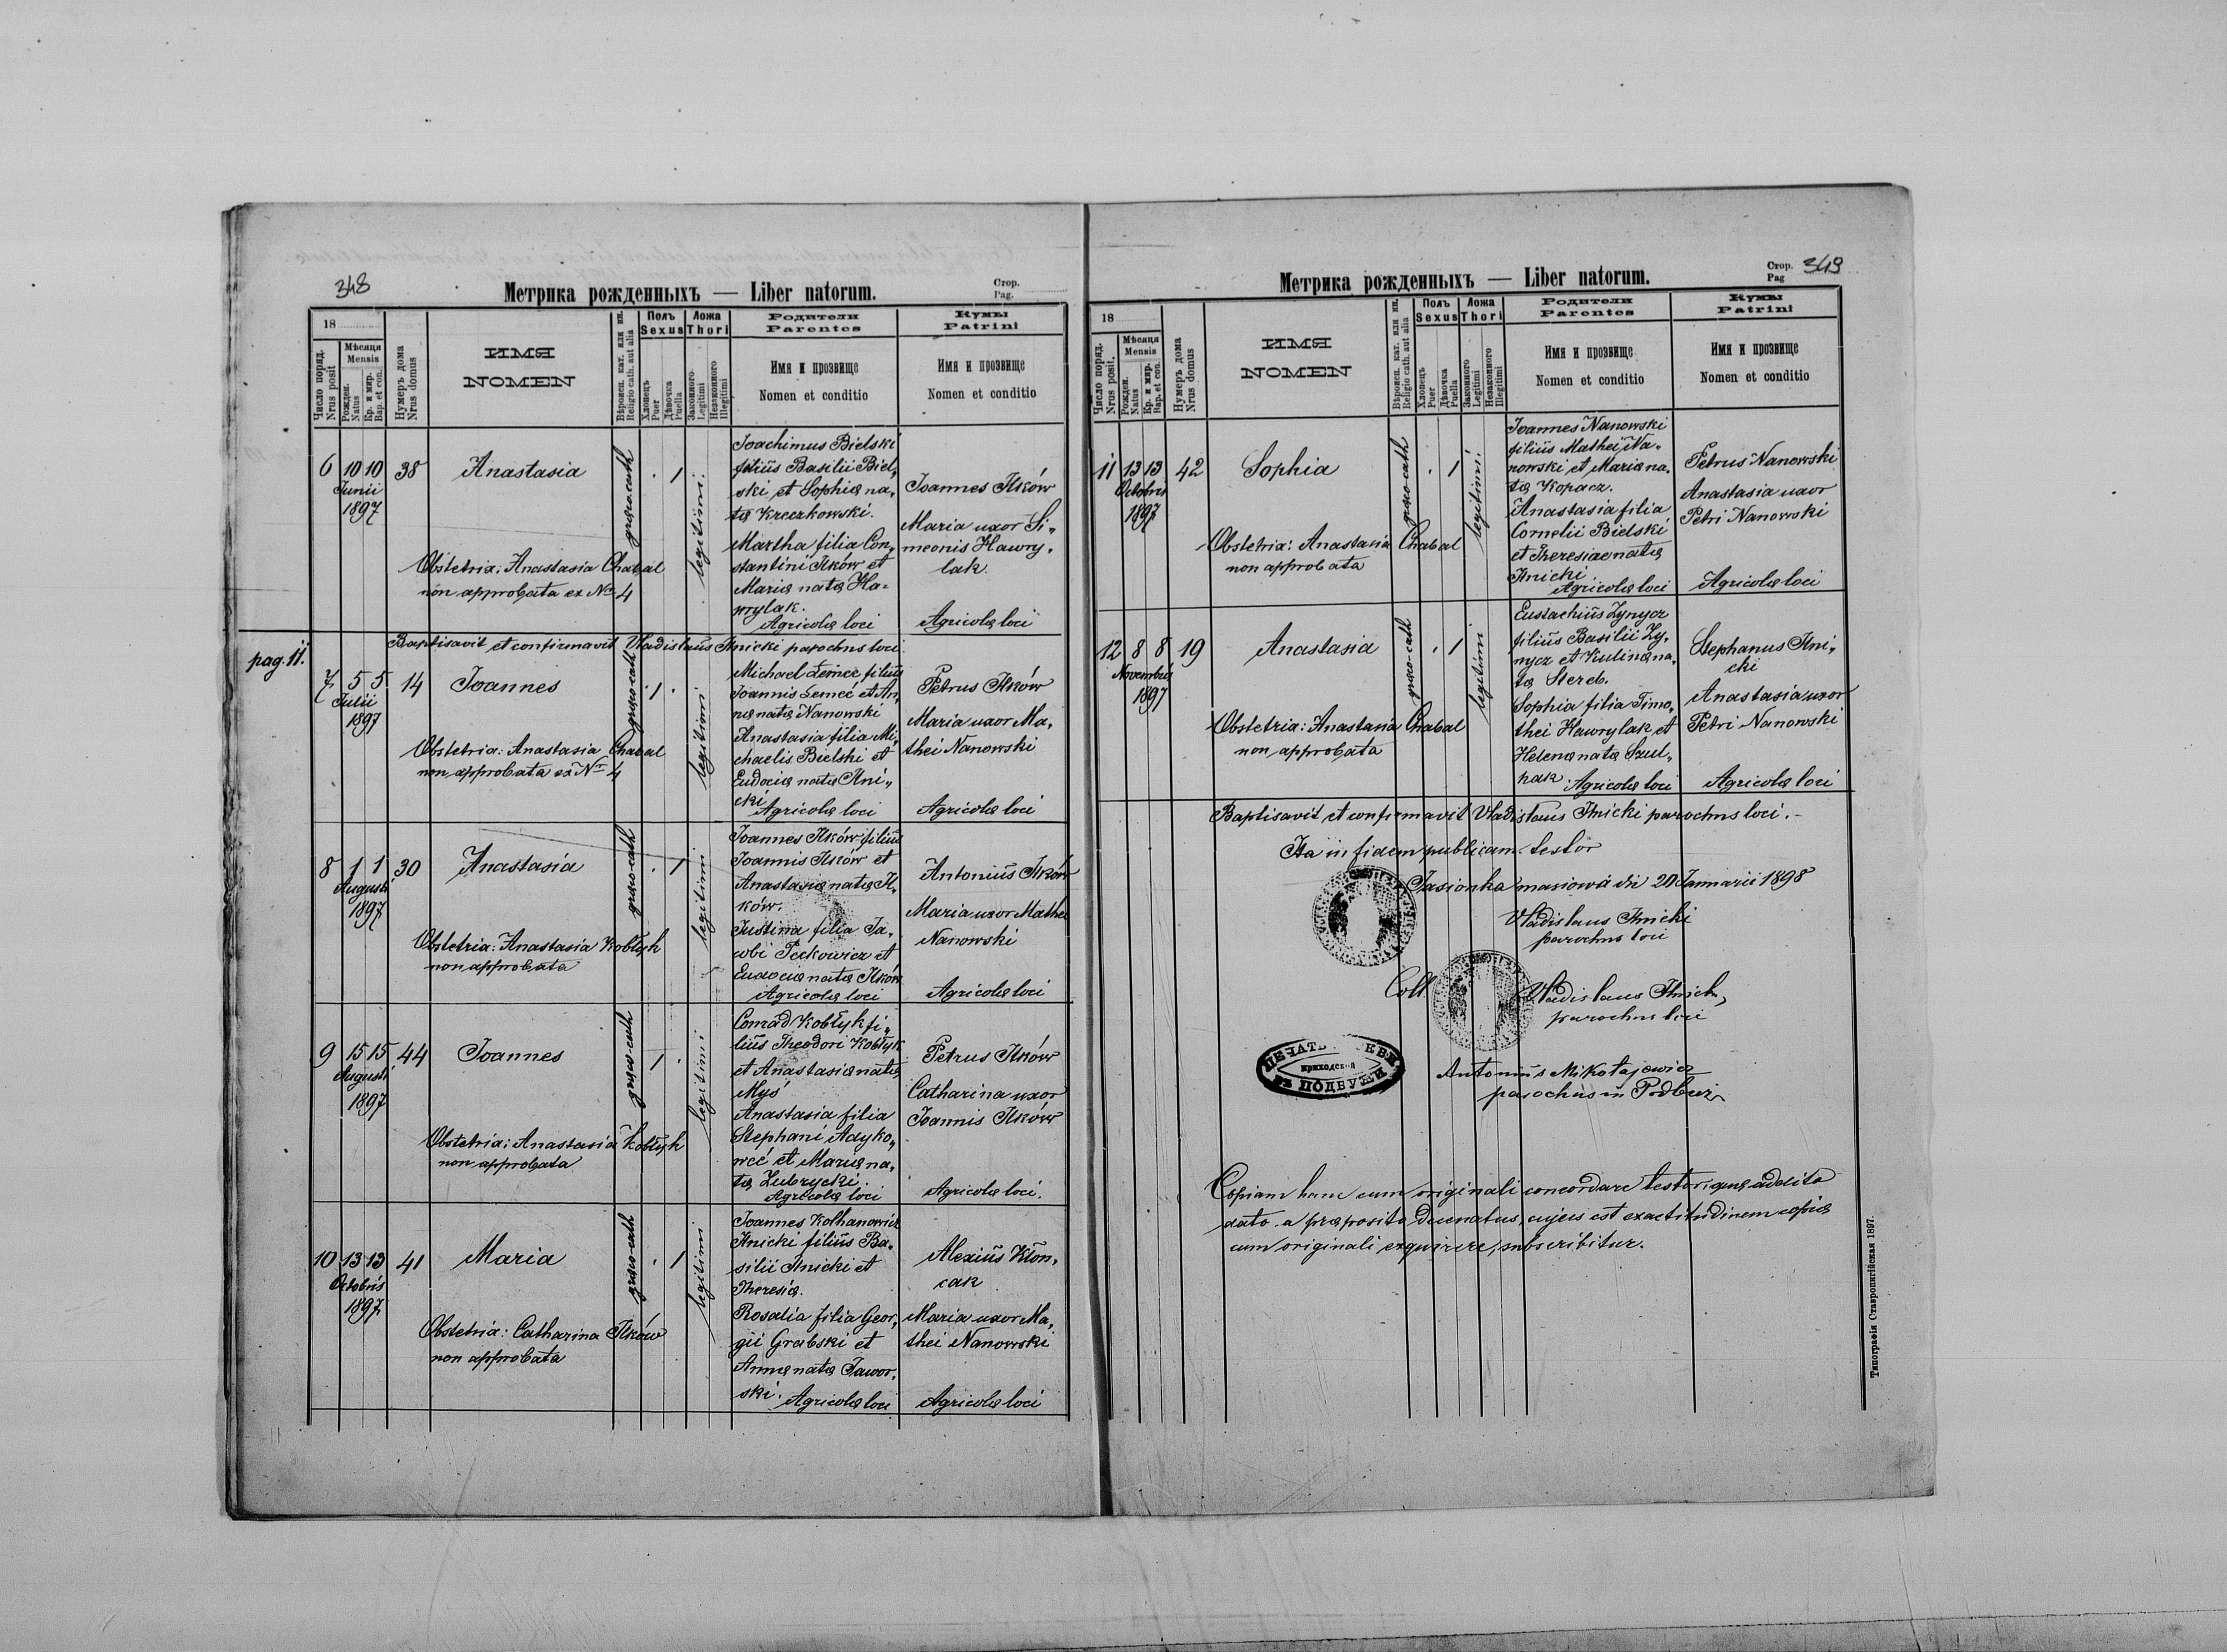 348
Метрика рожденныхъ — Liber natorum.
Стор.
Pag.
18
Число поряд.
Nrus posit
Мѣсяця
Mensis
Рожден.
Natus
Кр. и мир.
Bap. et con.
Нумеръ дома
Nrus domus
ИМЯ
NOMEN
Вѣроисп. кат. или ин.
Religio cath. aut alia
Полъ
Sexus
Хлопець
Puer
Дѣвочка
Puella
Ложа
Thori
Законного
Legitimi
Незаконного
Illegitimi
Родители
Parentes
Имя и прозвище
Nomen et conditio
Кумы
Patrini
Имя и прозвище
Nomen et conditio
6 10 10 38 Anastasia
Junii
1897
graeco-cath
. 1
legitimi
Obstetrix: Anastasia Chabal
non approbata ex Nr 4
Joachimus Bielski
filius Basilii Biel„
ski et Sophiæ na„
tæ Kreczkowski.
Martha filia Con„
stantini Ilków et
Mariæ natæ Ha„
wrylak.
Agricolæ loci
Joannes Ilków
Maria uxor Si„
meonis Hawry„
lak.
Agricolæ loci
Baptisavit et confirmavit Vladislaus Ilnicki parochus loci.
pag. 11.
7 5 5 14 Joannes
Julii
1897
graeco-cath
1 .
legitimi
Obstetrix: Anastasia Chabal
non approbata ex Nr 4
Michael Lemec filius
Joannis Lemeć et An„
næ natæ Nanowski
Anastasia filia Mi„
chaelis Bielski et
Eudociæ natæ Ilni„
cki
Agricolæ loci
Petrus Ilków
Maria uxor Ma„
thei Nanowski
Agricolæ loci
8 1 1 30 Anastasia
Augusti
1897
graeco-cath
. 1
legitimi
Obstetrix: Anastasia Kobłyk
non approbata
Joannes Ilków filius
Joannis Ilków et
Anastasiæ natæ Il„
ków.
Justina filia Ja„
cobi Peckowicz et
Eudociæ natæ Ilków
Agricolæ loci
Antonius Ilków
Maria uxor Mathei
Nanowski
Agricolæ loci
9 15 15 44 Joannes
Augusti
1897
graeco-cath
1 .
legitimi
Obstetrix: Anastasia Kobłyk
non approbata
Conrad Kobłyk fi„
lius Theodori Kobłyk
et Anastasiæ natæ
Myś
Anastasia filia
Stephani Adyko„
wcć et Mariæ na„
tæ Zubrycki.
Agricolæ loci
Petrus Ilków
Catharina uxor
Joannis Ilków
Agricolæ loci.
10 13 13 41 Maria
Octobris
1897
graeco-cath
. 1
legitimi
Obstetrix: Catharina Ilków
non approbata
Joannes Kolhanowicz
Ilnicki filius Ba„
silii Ilnicki et
Theresiæ.
Rosalia filia Geor„
gii Grabski et
Annæ natæ Jawor„
ski.
Agricolæ loci
Alexius Kłon„
cak
Maria uxor Ma„
thei Nanowski
Agricolæ loci
Метрика рожденныхъ — Liber natorum.
Стор.
Pag
349
18
Число поряд.
Nrus posit.
Мѣсяця
Mensis
Рожден.
Natus
Кр. и мир.
Bap. et con.
Нумеръ дома
Nrus domus
ИМЯ
NOMEN
Вѣроисп. кат. или ин.
Religio cath. aut alia
Полъ
Sexus
Хлопець
Puer
Дѣвочка
Puella
Ложа
Thori
Законного
Legitimi
Незаконного
Illegitimi
Родители
Parentes
Имя и прозвище
Nomen et conditio
Кумы
Patrini
Имя и прозвище
Nomen et conditio
11 13 13 42 Sophia
Octobris
1897
graeco-cath
. 1
legitimi
Obstetrix: Anastasia Chabal
non approbata
Joannes Nanowski
filius Mathei Na„
nowski et Mariæ na„
tæ Kopacz.
Anastasia filia
Cornelii Bielski
et Theresiae natæ
Ilnicki
Agricolæ loci
Petrus Nanowski
Anastasia uxor
Petri Nanowski
Agricolæ loci
12 8 8 19 Anastasia
Novembris
1897
graeco-cath
. 1
legitimi
Obstetrix: Anastasia Chabal
non approbata
Eustachius Zynycz
filius Basilii Zy„
nycz et Kulinæ na„
tæ Stereb.
Sophia filia Timo„
thei Hawrylak et
Helenæ natæ Szul„
hak.
Agricolæ loci
Stephanus Ilni„
cki
Anastasia uxor
Petri Nanowski
Agricolæ loci
Baptisavit et confirmavit Vladislaus Ilnicki parochus loci.
Ita in fidem publicam testor
Jasionka masiowa die 20 Januarii 1898
Vladislaus Ilnicki
parochus loci
Coll
Vladislaus Ilnicki
parochus loci
ПЕЧАТЬ
приходской
ВЪ ПОДБУЖИ
Antonius Mikołajewicz
parochus in Podbuż
Copiam hanc cum originali concordare testor, quæ addito
dato a præposito Decanatus, cujus est exactitudinem copiæ
cum originali exquirere, subscribitur.
Типографія Ставропигійская 1897.